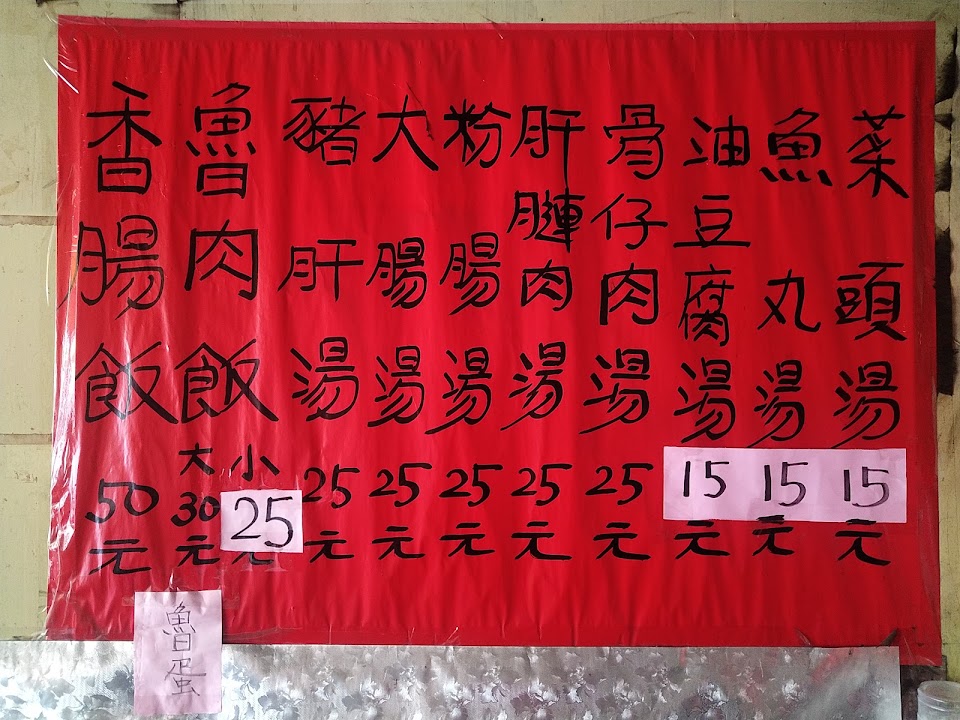 菜頭湯15元
魚丸湯15元
油豆腐湯15元
骨仔肉湯25元
肝肉湯25元
粉腸湯25元
大腸湯25元
豬肝湯25元
魯肉飯
大30元
小25元
香腸飯50元
魯蛋